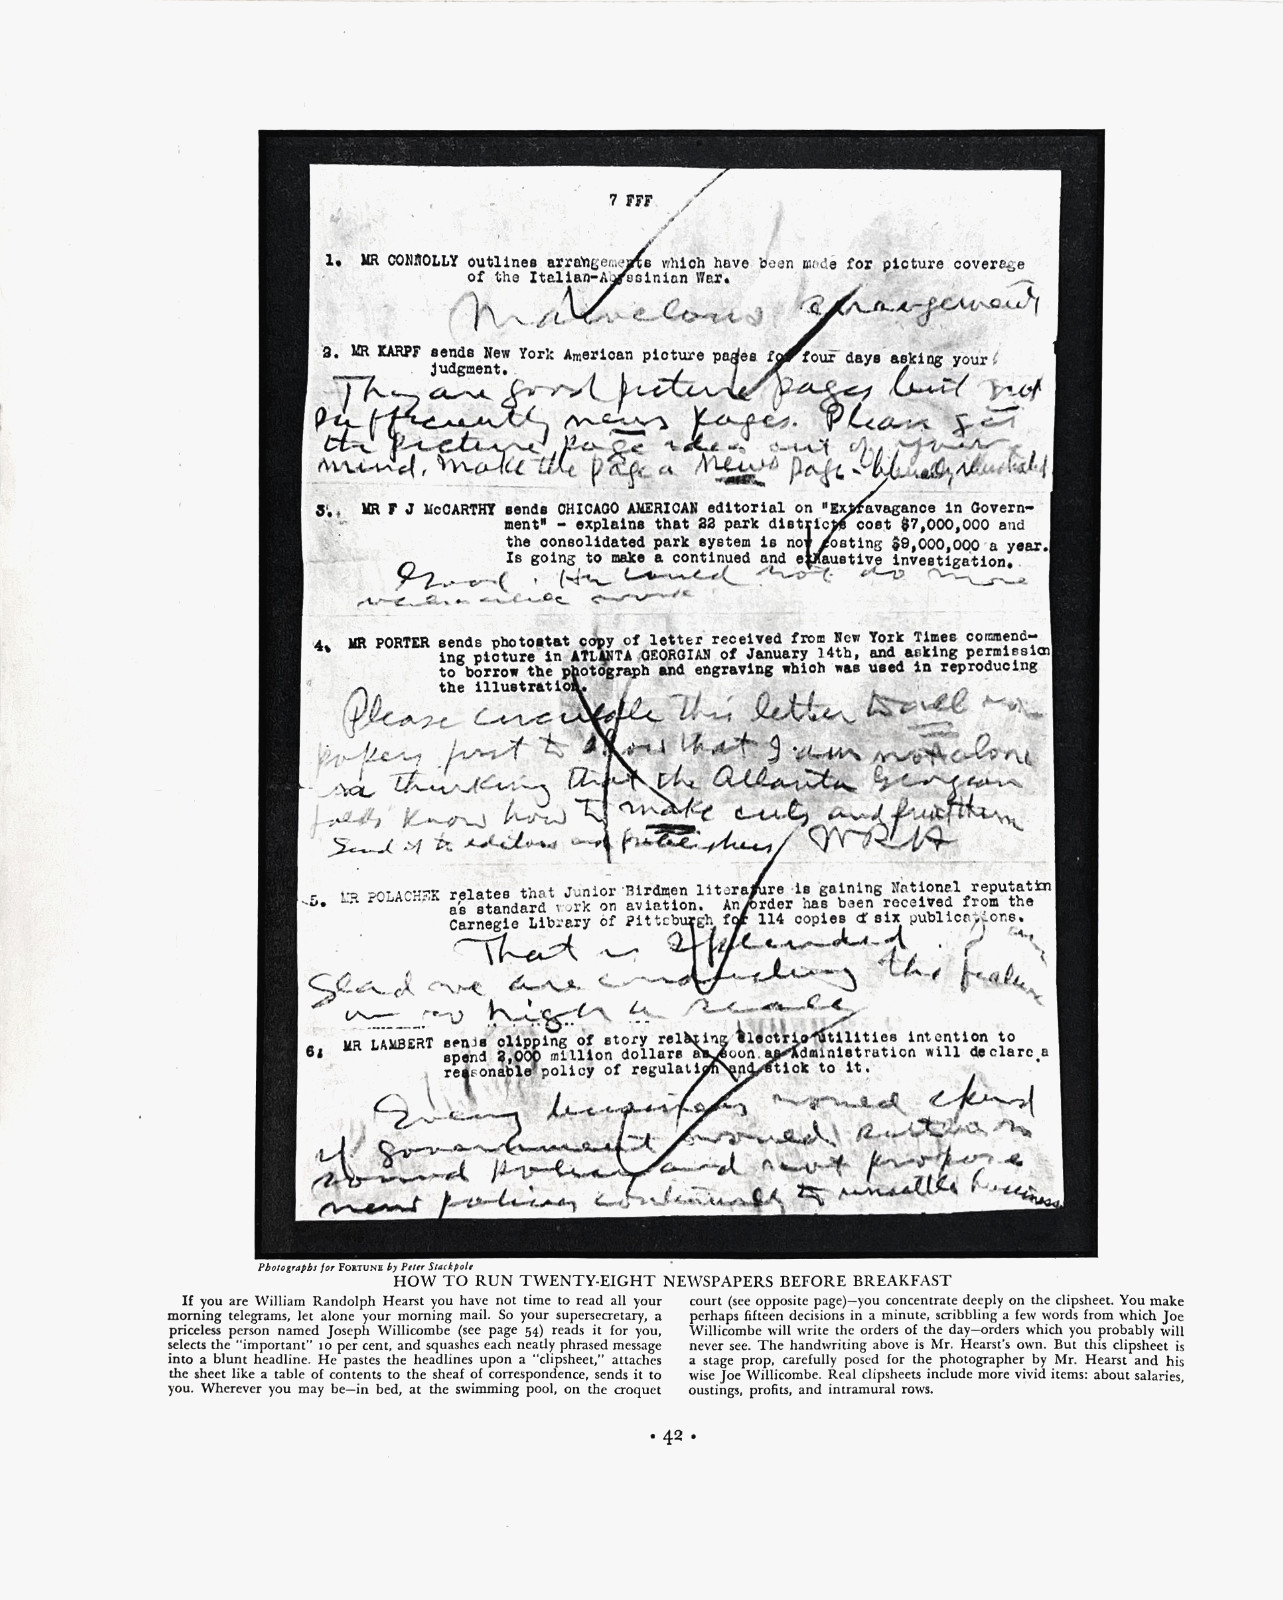 7 FFF
1. MR CONNOLLY outlines arrangements which have been made for picture coverage
of the Italian-Abyssinian War.
Marvelous arrangements
2. MR KARPF sends New York American picture pages for four days asking your
judgment.
They are good picture pages but not
sufficiently news pages. Please get
the picture page idea out of your
mind. Make the page a News page - liberally illustrated
3. MR F J McCARTHY sends CHICAGO AMERICAN editorial on "Extravagance in Govern-
ment" - explains that 22 park districts cost $7,000,000 and
the consolidated park system is now costing $9,000,000 a year.
Is going to make a continued and exhaustive investigation.
Good. He could not do more
work
4. MR PORTER sends photostat copy of letter received from New York Times commend-
ing picture in ATLANTA GEORGIAN of January 14th, and asking permission
to borrow the photograph and engraving which was used in reproducing
the illustration.
Please circulate this letter to all our
papers just to show that I am not alone
in thinking that the Atlanta Georgian
folks know how to make cuts and print them
Send it to editors and publishers WRH
5. MR POLACHEK relates that Junior Birdmen literature is gaining National reputatin
as standard work on aviation. An order has been received from the
Carnegie Library of Pittsburgh for 114 copies of six publications.
That is splendid. I am
glad we are conducting this feature
on so high a scale
6. MR LAMBERT sends clipping of story relating electric utilities intention to
spend 2,000 million dollars as soon as Administration will declare a
reasonable policy of regulation and stick to it.
Every business would spend
if government would settle on
sound policies and not propose
new policies continually to unsettle business
Photographs for FORTUNE by Peter Stackpole
HOW TO RUN TWENTY-EIGHT NEWSPAPERS BEFORE BREAKFAST
If you are William Randolph Hearst you have not time to read all your
morning telegrams, let alone your morning mail. So your supersecretary, a
priceless person named Joseph Willicombe (see page 54) reads it for you,
selects the "important" 10 per cent, and squashes each neatly phrased message
into a blunt headline. He pastes the headlines upon a "clipsheet," attaches
the sheet like a table of contents to the sheaf of correspondence, sends it to
you. Wherever you may be—in bed, at the swimming pool, on the croquet
court (see opposite page)—you concentrate deeply on the clipsheet. You make
perhaps fifteen decisions in a minute, scribbling a few words from which Joe
Willicombe will write the orders of the day—orders which you probably will
never see. The handwriting above is Mr. Hearst's own. But this clipsheet is
a stage prop, carefully posed for the photographer by Mr. Hearst and his
wise Joe Willicombe. Real clipsheets include more vivid items: about salaries,
oustings, profits, and intramural rows.
• 42 •